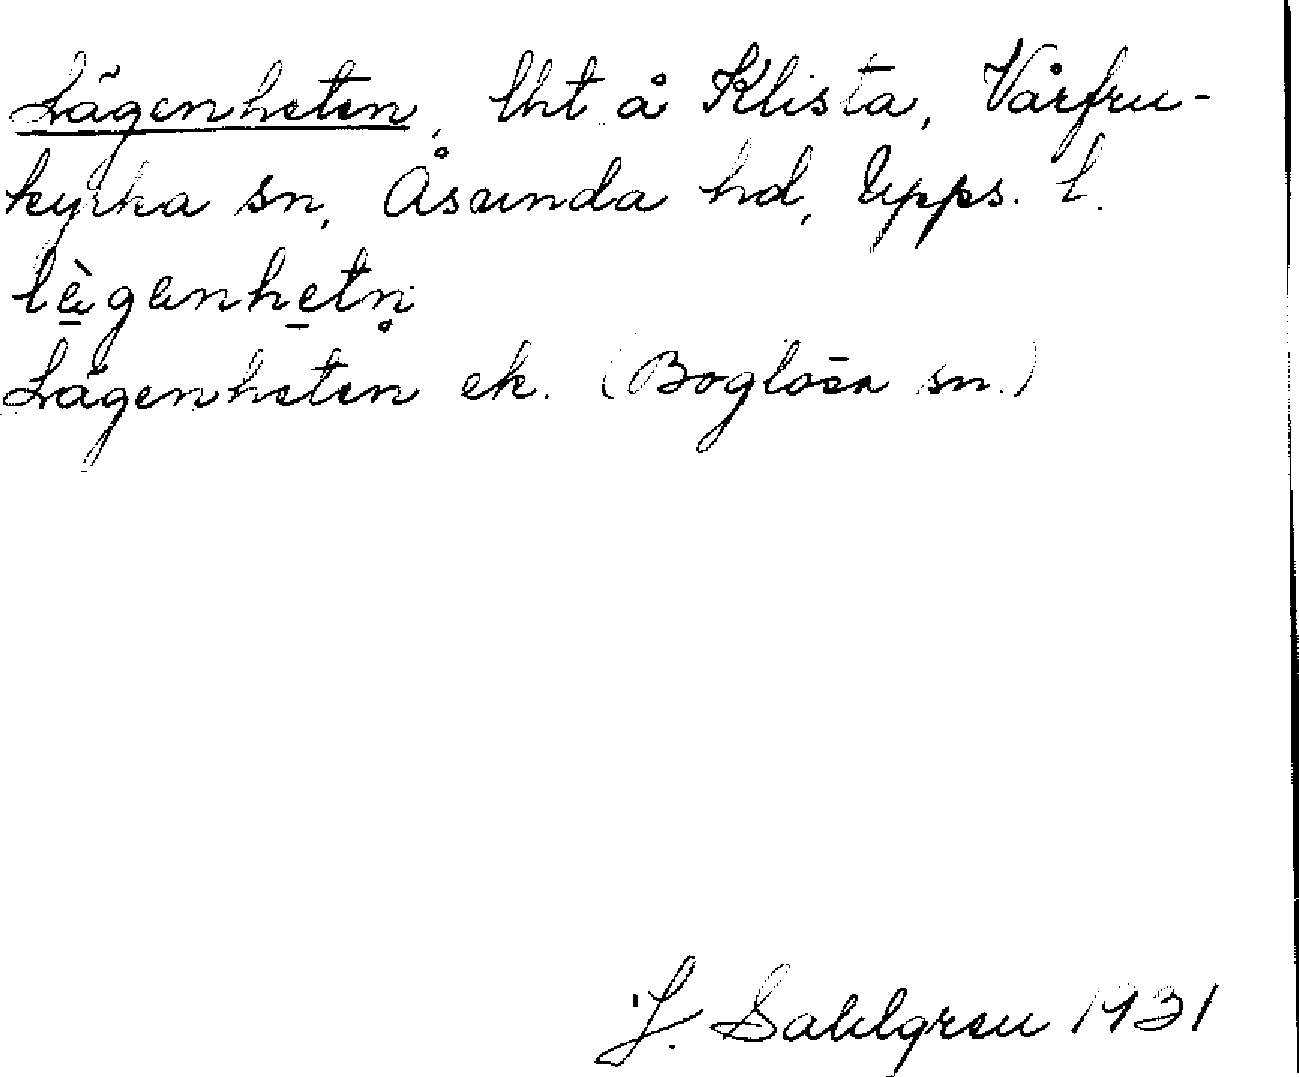 Lägenheten, lht å Klista, Vårfru-
kyrka sn, Åsunda hd, Upps. l.
lä̀genhetn̥
Lägenheten ek. (Boglösa sn.)
J. Sahlgren 1931